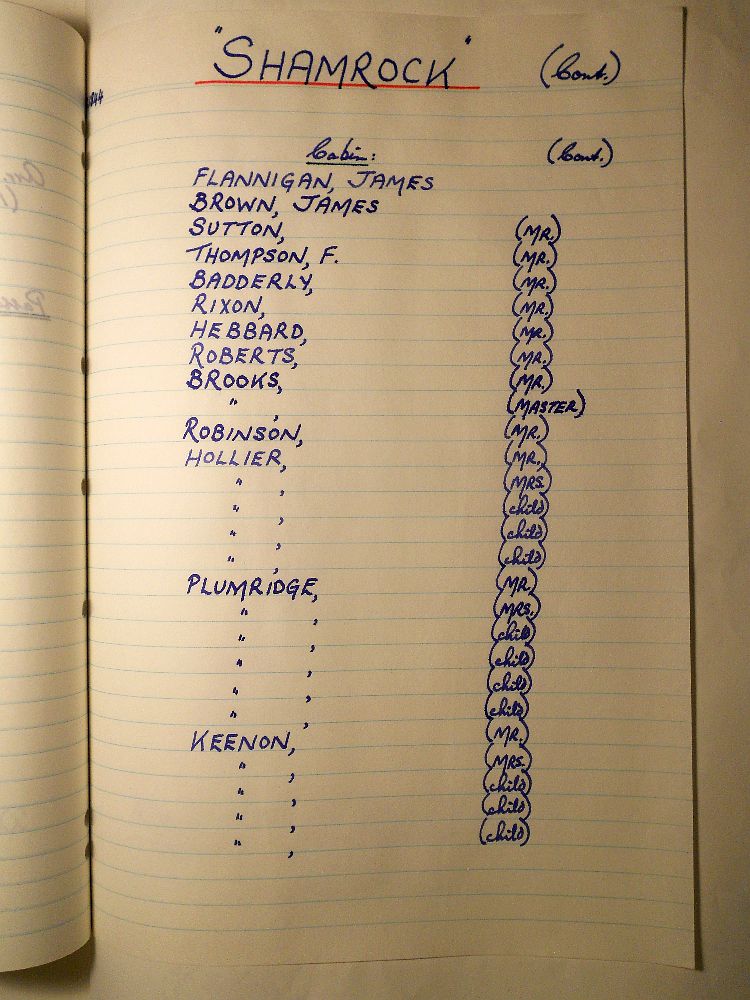 "SHAMROCK" (Cont.)
Cabin: (Cont.)
FLANNIGAN, JAMES
BROWN, JAMES
SUTTON, (MR.)
THOMPSON, F. (MR.)
BADDERLY, (MR.)
RIXON, (MR.)
HEBBARD, (MR.)
ROBERTS, (MR.)
BROOKS, (MR.)
" , (MASTER)
ROBINSON, (MR.)
HOLLIER, (MR.)
" , (MRS.)
" , (child)
" , (child)
" , (child)
PLUMRIDGE, (MR.)
" , (MRS.)
" , (child)
" , (child)
" , (child)
" , (child)
KEENON, (MR.)
" , (MRS.)
" , (child)
" , (child)
" , (child)